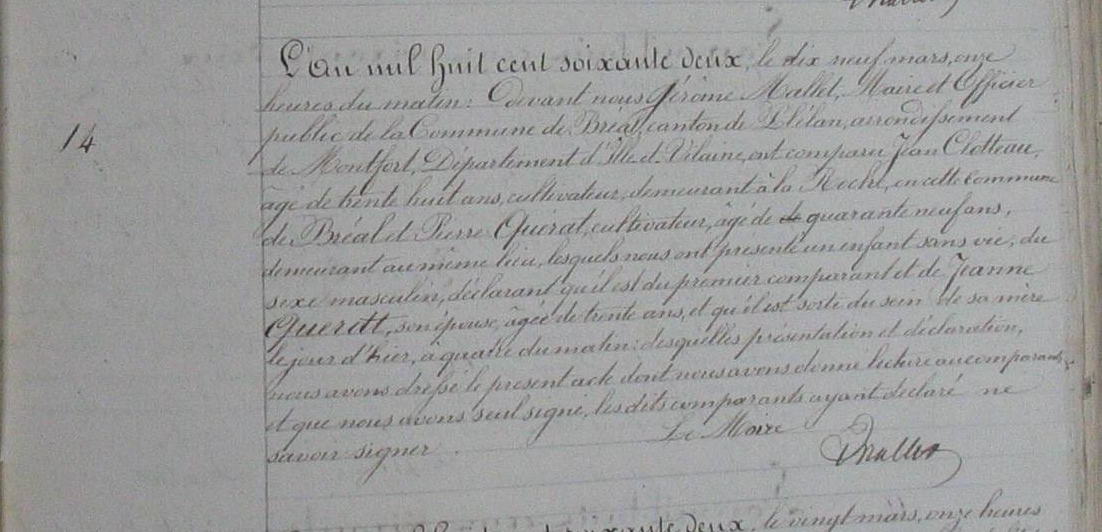 L'An mil huit cent soixante deux, le dix neuf mars, onze
heures du matin: Devant nous Jérôme Mallet, Maire et Officier
public de la Commune de Bréal, canton de Plélan, arrondissement
14
de Montfort, Département d'Ille et Vilaine, ont comparu Jean Clotteau,
âgé de trente huit ans, cultivateur, demeurant à la Roche, en cette Commune
de Bréal et Pierre Quérat, cultivateur, âgé de de quarante neuf ans,
demeurant au même lieu, lesquels nous ont présenté un enfant sans vie, du
sexe masculin, déclarant qu'il est du premier comparant et de Jeanne
Queratt, son épouse, âgée de trente ans, et qu'il est sorti du sein de sa mère
le jour d'hier, à quatre du matin: desquelles présentation et déclaration,
nous avons dressé le present acte dont nous avons donné lecture au comparants,
et que nous avons seul signé, les dits comparants ayant déclaré ne
savoir signer.
Le Maire
Mallet
huit cent soixante deux, le vingt mars, onze heures